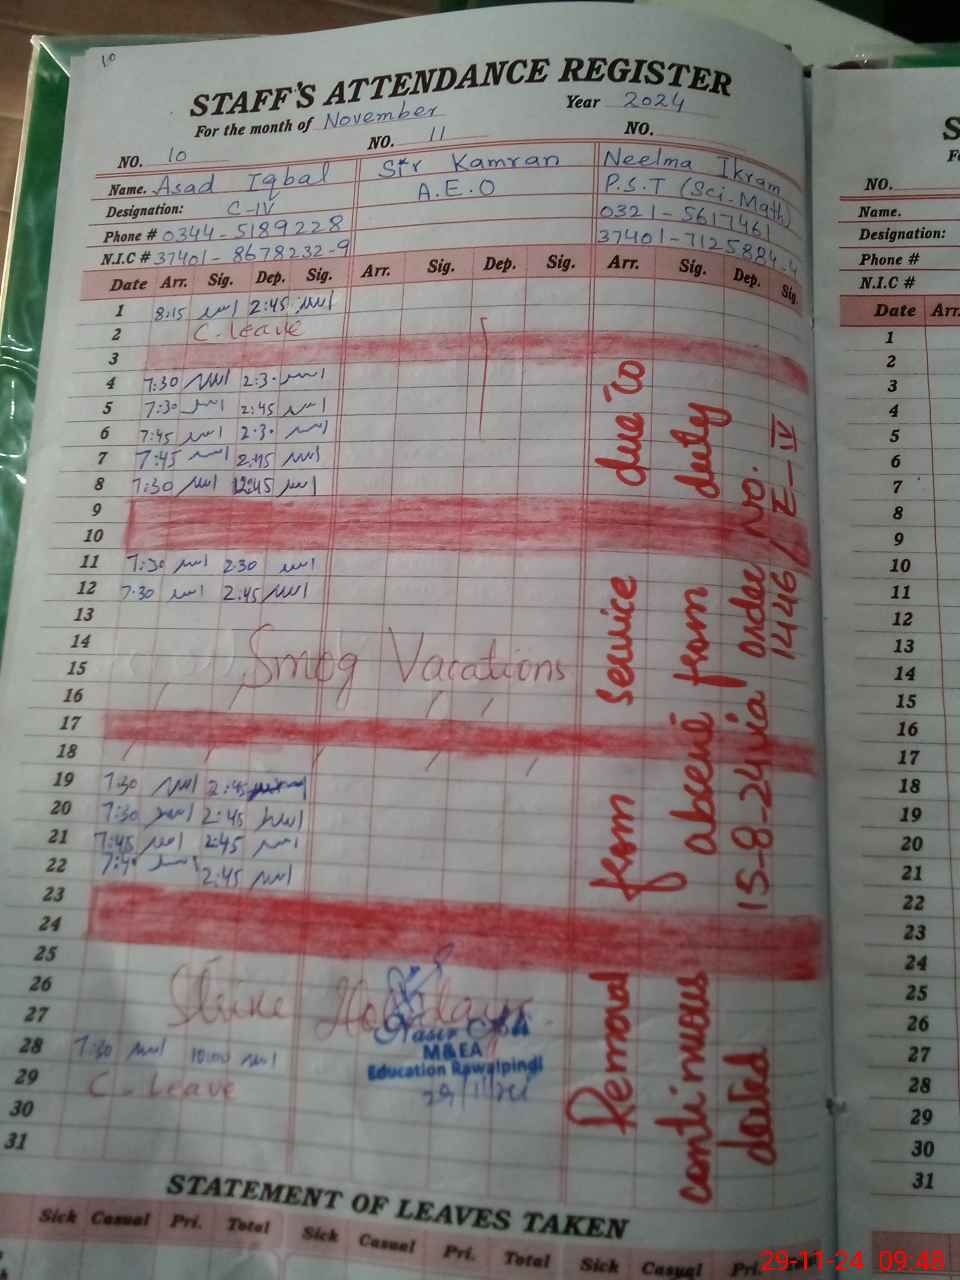 10
STAFF'S ATTENDANCE REGISTER
For the month of November Year 2024
NO. 10 NO. 11 NO.
Name. Asad Iqbal Sir Kamran Neelma Ikram
Designation: C-IV A.E.O P.S.T (Sci-Math)
Phone # 0344-5189228 0321-5617461
N.I.C # 37401-8678232-9 37401-7125884-4
Date Arr. Sig. Dep. Sig. Arr. Sig. Dep. Sig. Arr. Sig. Dep. Sig.
1 8:15 2:45
2 C.leave
3
4 7:30 2:30
5 7:30 2:45
6 7:45 2:30
7 7:45 2:45
8 7:30 12:45
9
10
11 7:30 2:30
12 7:30 2:45
13
14
15 Smog Vacations
16
17
18
19 7:30 2:45
20 7:30 2:45
21 7:45 2:45
22 2:45
23
24
25
26 Strike Holidays
27
28 7:30 10:00
29 C-Leave
30
31
Removal from service due to
continuous absence from duty
dated 15-8-24 via order No.
1446/E-IV
M&EA
Education Rawalpindi
29/11/24
STATEMENT OF LEAVES TAKEN
Sick Casual Pri. Total Sick Casual Pri. Total Sick Casual Pri.
S
NO.
Name.
Designation:
Phone #
N.I.C #
Date Arr.
1
2
3
4
5
6
7
8
9
10
11
12
13
14
15
16
17
18
19
20
21
22
23
24
25
26
27
28
29
30
31
29-11-24 09:48